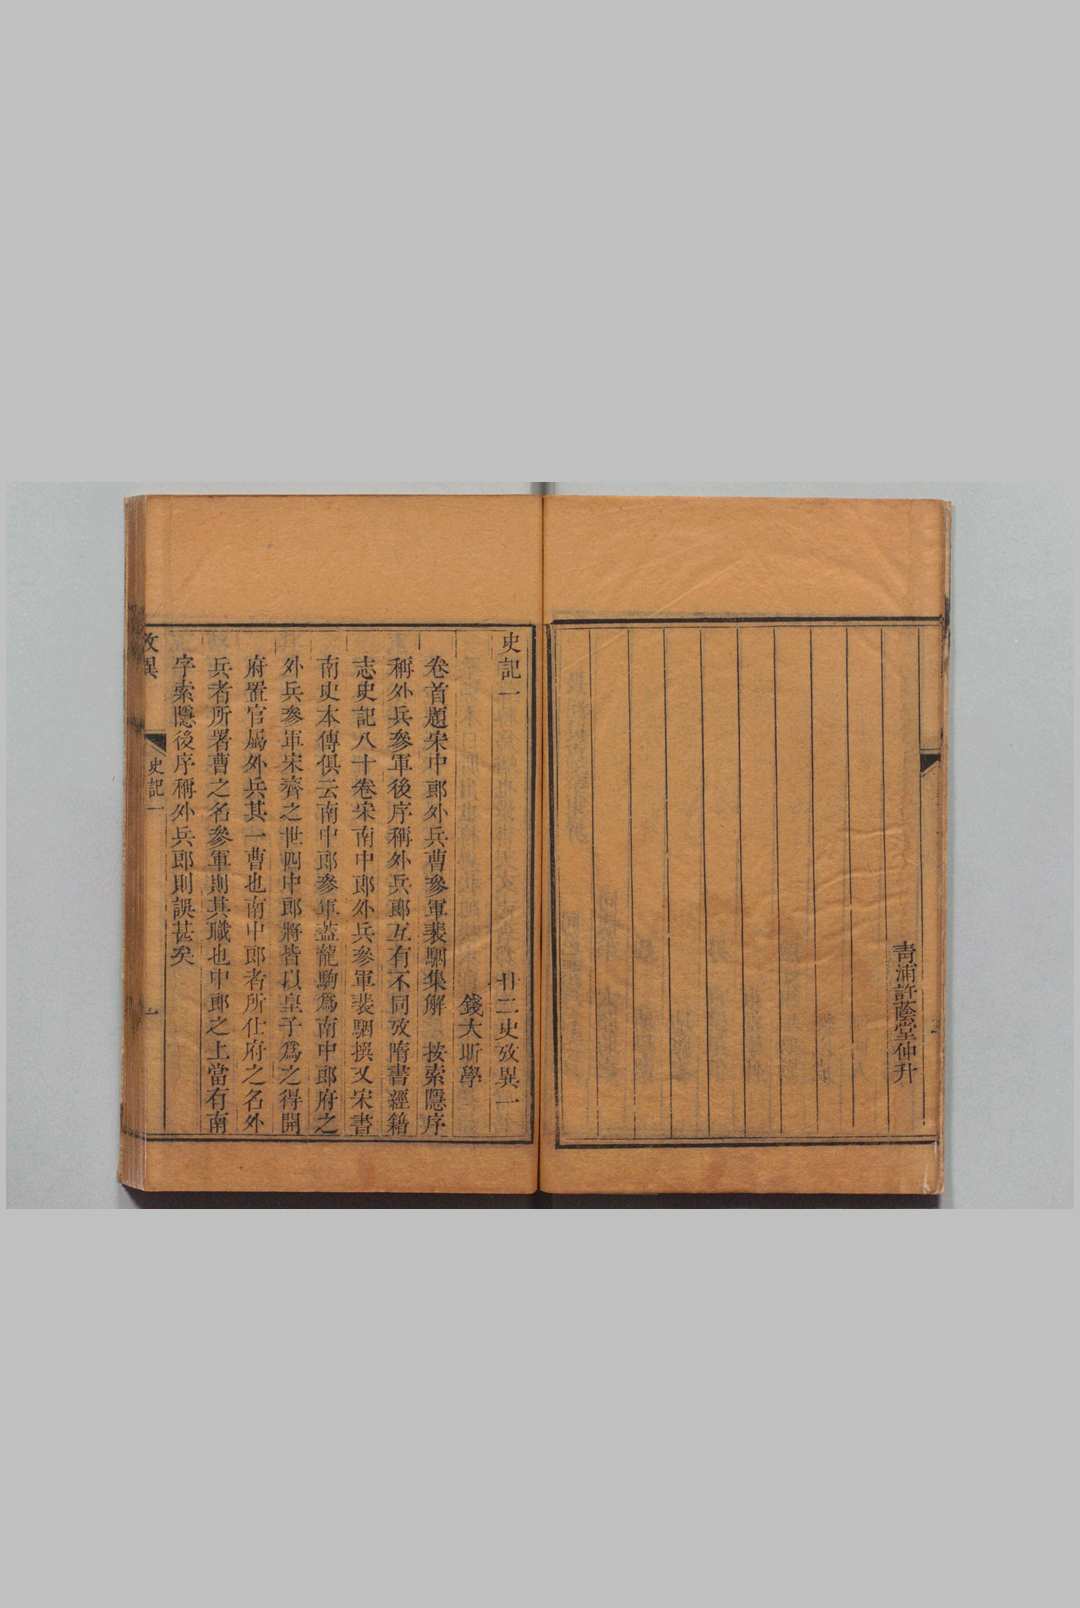 青浦許蔭堂仲升
史記一 廿二史攷異一
錢大昕學
卷首題宋中郎外兵曹參軍裴駰集解 按索隱序
稱外兵參軍後序稱外兵郎互有不同攷隋書經籍
志史記八十卷宋南中郎外兵參軍裴駰撰又宋書
南史本傳俱云南中郎參軍蓋龍駒爲南中郎府之
外兵參軍宋齊之世四中郎將皆以皇子爲之得開
府置官屬外兵其一曹也南中郎者所仕府之名外
兵者所署曹之名參軍則其職也中郎之上當有南
字索隱後序稱外兵郎則誤甚矣
攷異 史記一 一